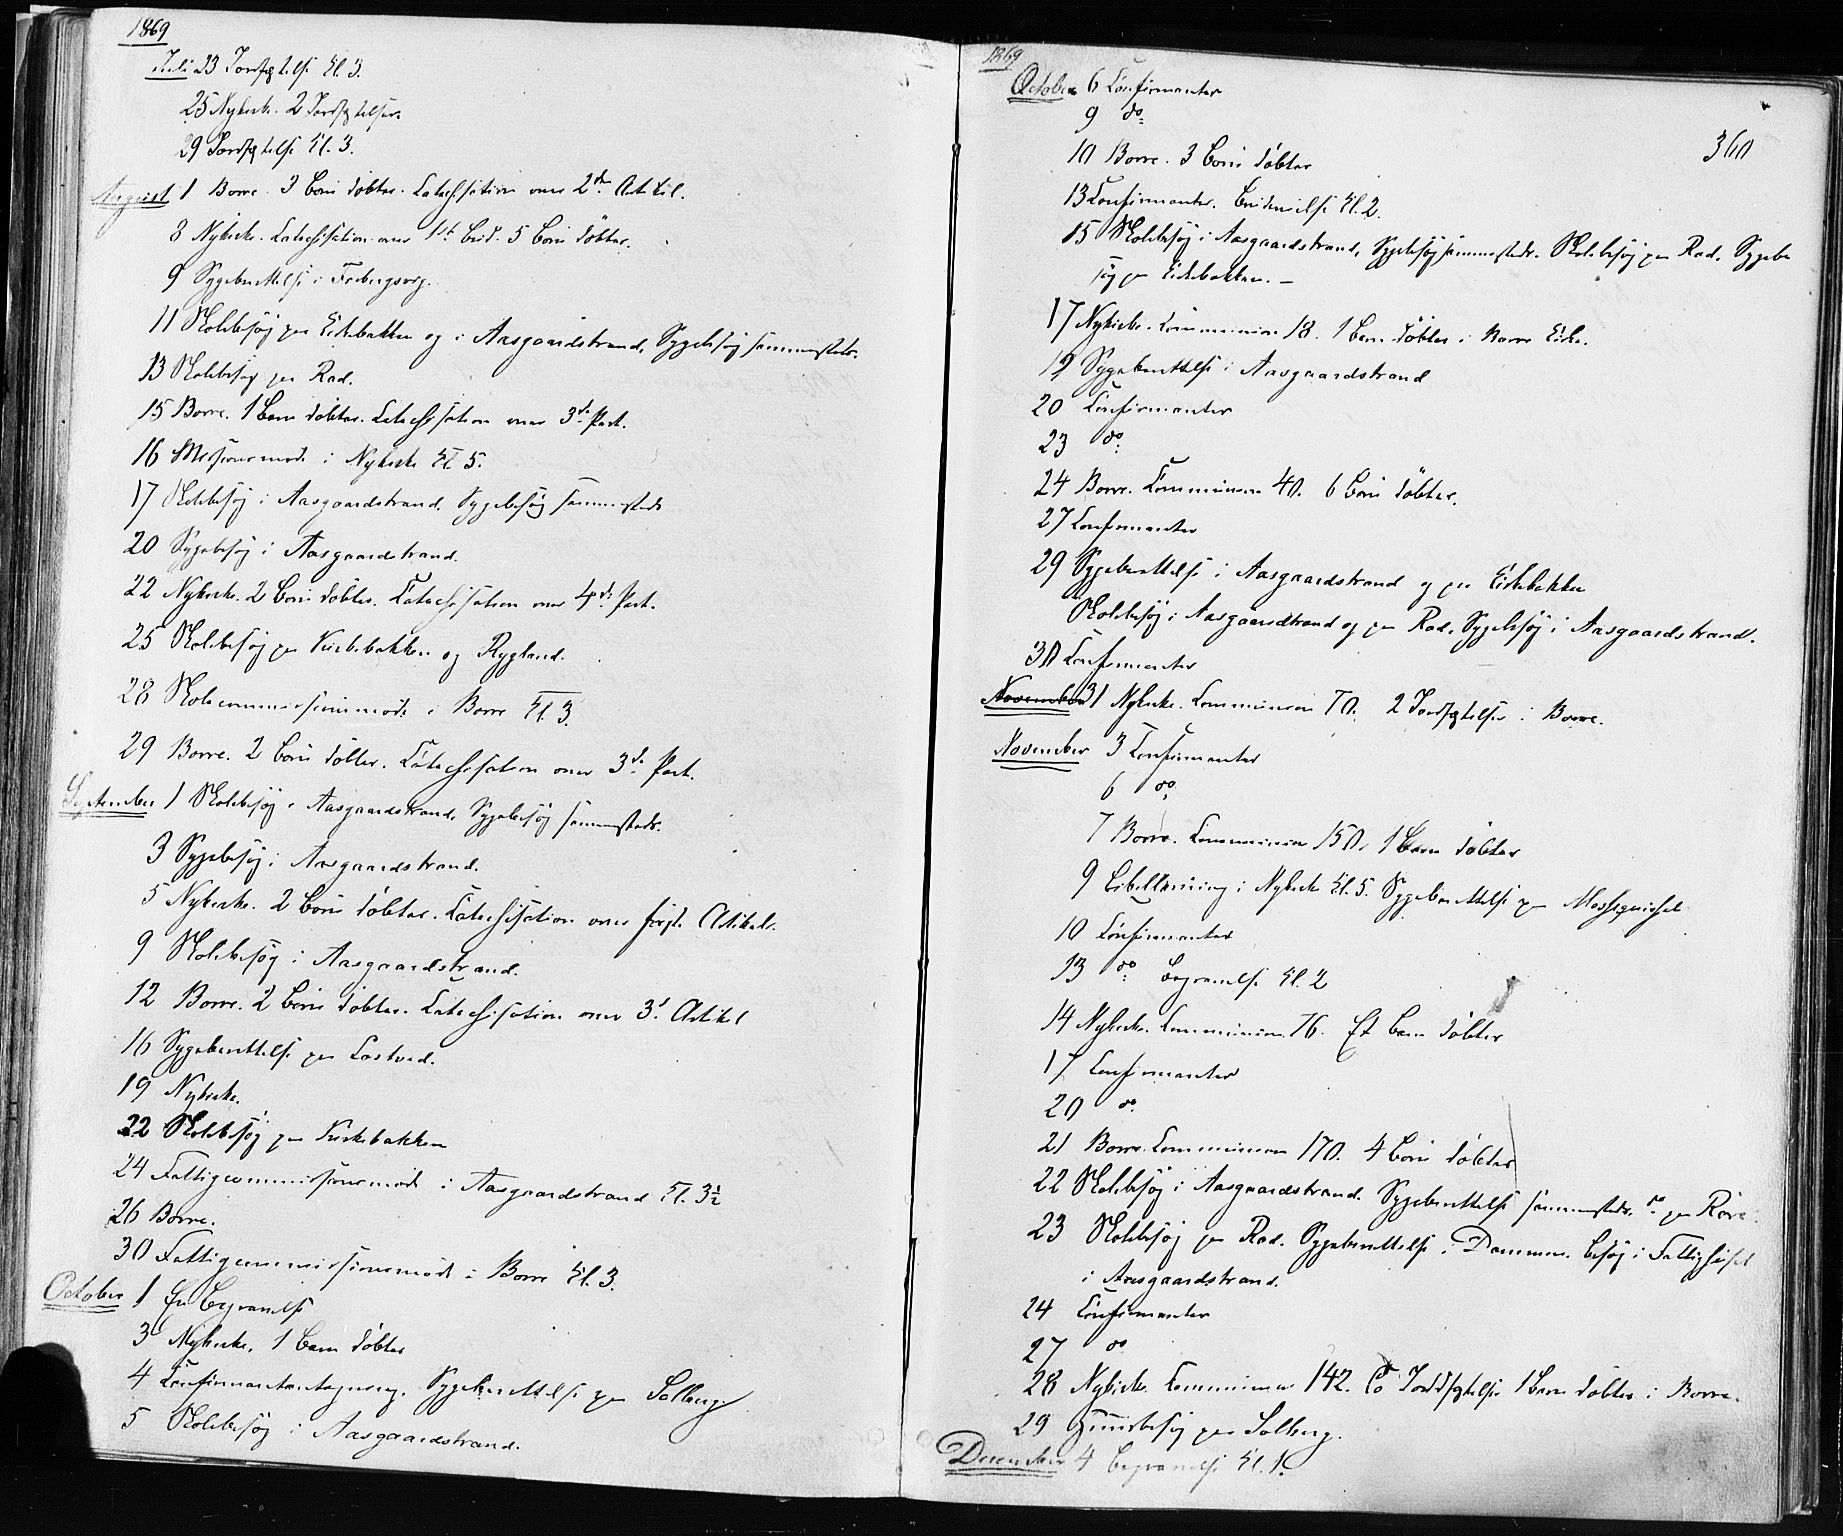 1869
Juli 23 Jordfæstelse Kl. 3.
25 Nykirke. 2 Jordfæstelser.
29 Jordfæstelse Kl. 3.
August 1 Borre. 3 Børn døbter. Catechisation over 2den Artikel.
8 Nykirke. Catechisation over 1ste Bud. 5 Børn døbter.
9 Sygeberettelse i Frebergsvig.
11 Skolebesøg paa Eikebakken og i Aasgaardstrand, Sygebesøg sammesteds.
13 Skolebesøg paa Rad.
15 Borre. 1 Barn døbter. Catechisation over 3die Part.
16 Missionsmøde i Nykirke Kl 5.
17 Skolebesøg i Aasgaardstrand, Sygebesøg sammesteds
20 Sygebesøg i Aasgaardstrand.
22 Nykirke. 2 Børn døbter. Catechisation over 4de Part.
25 Skolebesøg paa Kirkebakken og Rygland.
28 Skolecommissionsmøde i Borre Kl. 3.
29 Borre. 2 Børn døbter. Catechisation over 3die Part.
September 1 Skolebesøg i Aasgaardstrand, Sygebesøg sammesteds.
3 Sygebesøg i Aasgaardstrand.
5 Nykirke. 2 Børn døbter. Catechisation over første Artikel.
9 Skolebesøg i Aasgaardstrand.
12 Borre. 2 Børn døbter. Catechisation over 3d. Artikel
16 Sygeberettelse paa Tostved.
19 Nykirke.
22 Skolebesøg paa Kirkebakken
24 Fattigcommissionsmøde i Aasgaardstrand Kl. 3½
26 Borre.
30 Fattigcommissionsmøde i Borre Kl. 3.
October 1 En Begravelse
3 Nykirke. 1 Barn døbter
4 Confirmantantagning. Sygeberettelse paa Solberg.
5 Skolebesøg i Aasgaardstrand.
1869
October 6 Confirmanter
360
9 do
10 Borre. 3 Børn døbter
13 Confirmanter. Brudevielse Kl. 2.
15 Skolebesøg i Aasgaardstrand, Sygebesøg sammesteds. Skolebesøg paa Rad. Sygebe
søg paa Eikebakken. –
17 Nykirke. Communion 18. 1 Barn døbter i Borre Kirke.
19 Sygeberettelse i Aasgaardstrand
20 Confirmanter
23 do
24 Borre. Communion 40. 6 Børn døbter.
27 Confirmanter
29 Sygeberettelse i Aasgaardstrand og paa Eikebakken
Skolebesøg i Aasgaardstrand og paa Rad. Sygebesøg i Aasgaardstrand.
30 Confirmanter
November 31 Nykirke. Communion 70. 2 Jordfæstelser i Borre.
November 3 Confirmanter
6 do
7 Borre. Communion 150. 1 Barn døbter
9 Bibellæsning i Nykirke Kl. 5. Sygeberettelse paa
10 Confirmanter
13 do Begravelse Kl. 2
14 Nykirke. Communion 76. Et Barn døbter
17 Confirmanter
20 do
21 Borre. Communion 170. 4 Børn døbter
22 Skolebesøg i Aasgaardstrand. Sygeberettelse sammesteds. do paa Røre.
23 Skolebesøg paa Rad. Sygeberettelse i Dammen. Besøg i Fattighuset
i Aasgaardstrand.
24 Confirmanter
27 do
28 Nykirke. Communion 142. To Jordfæstelser 1 Barn døbter i Borre.
29 Huusbesøg paa Solberg.
December 4 Begravelse Kl. 1.